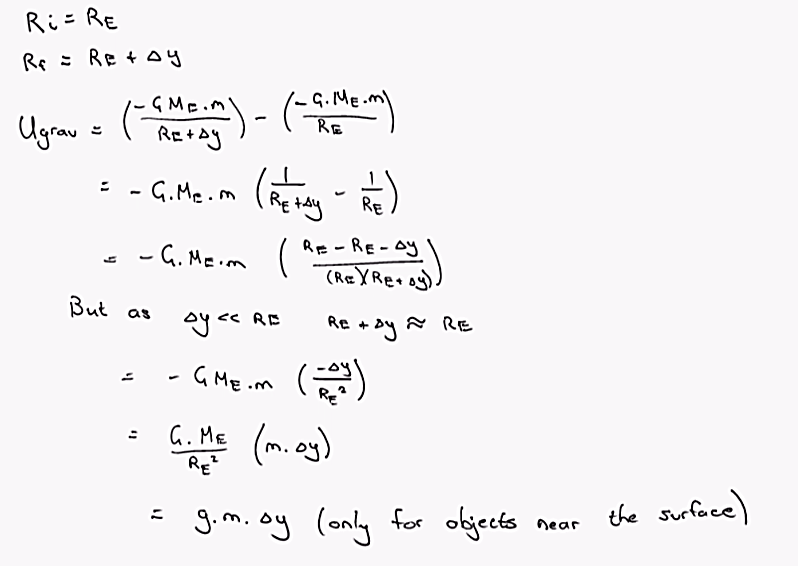 Ri = RE
Rf = RE + Δy
Ugrav = (-GME.m / RE+Δy) - (-G.ME.m / RE)
= - G.ME.m (1 / RE+Δy - 1 / RE)
= - G.ME.m (RE - RE - Δy / (RE)(RE+Δy))
But as Δy << RE RE + Δy ≈ RE
= - GME.m (-Δy / RE²)
= G.ME / RE² (m.Δy)
= g.m.Δy (only for objects near the surface)